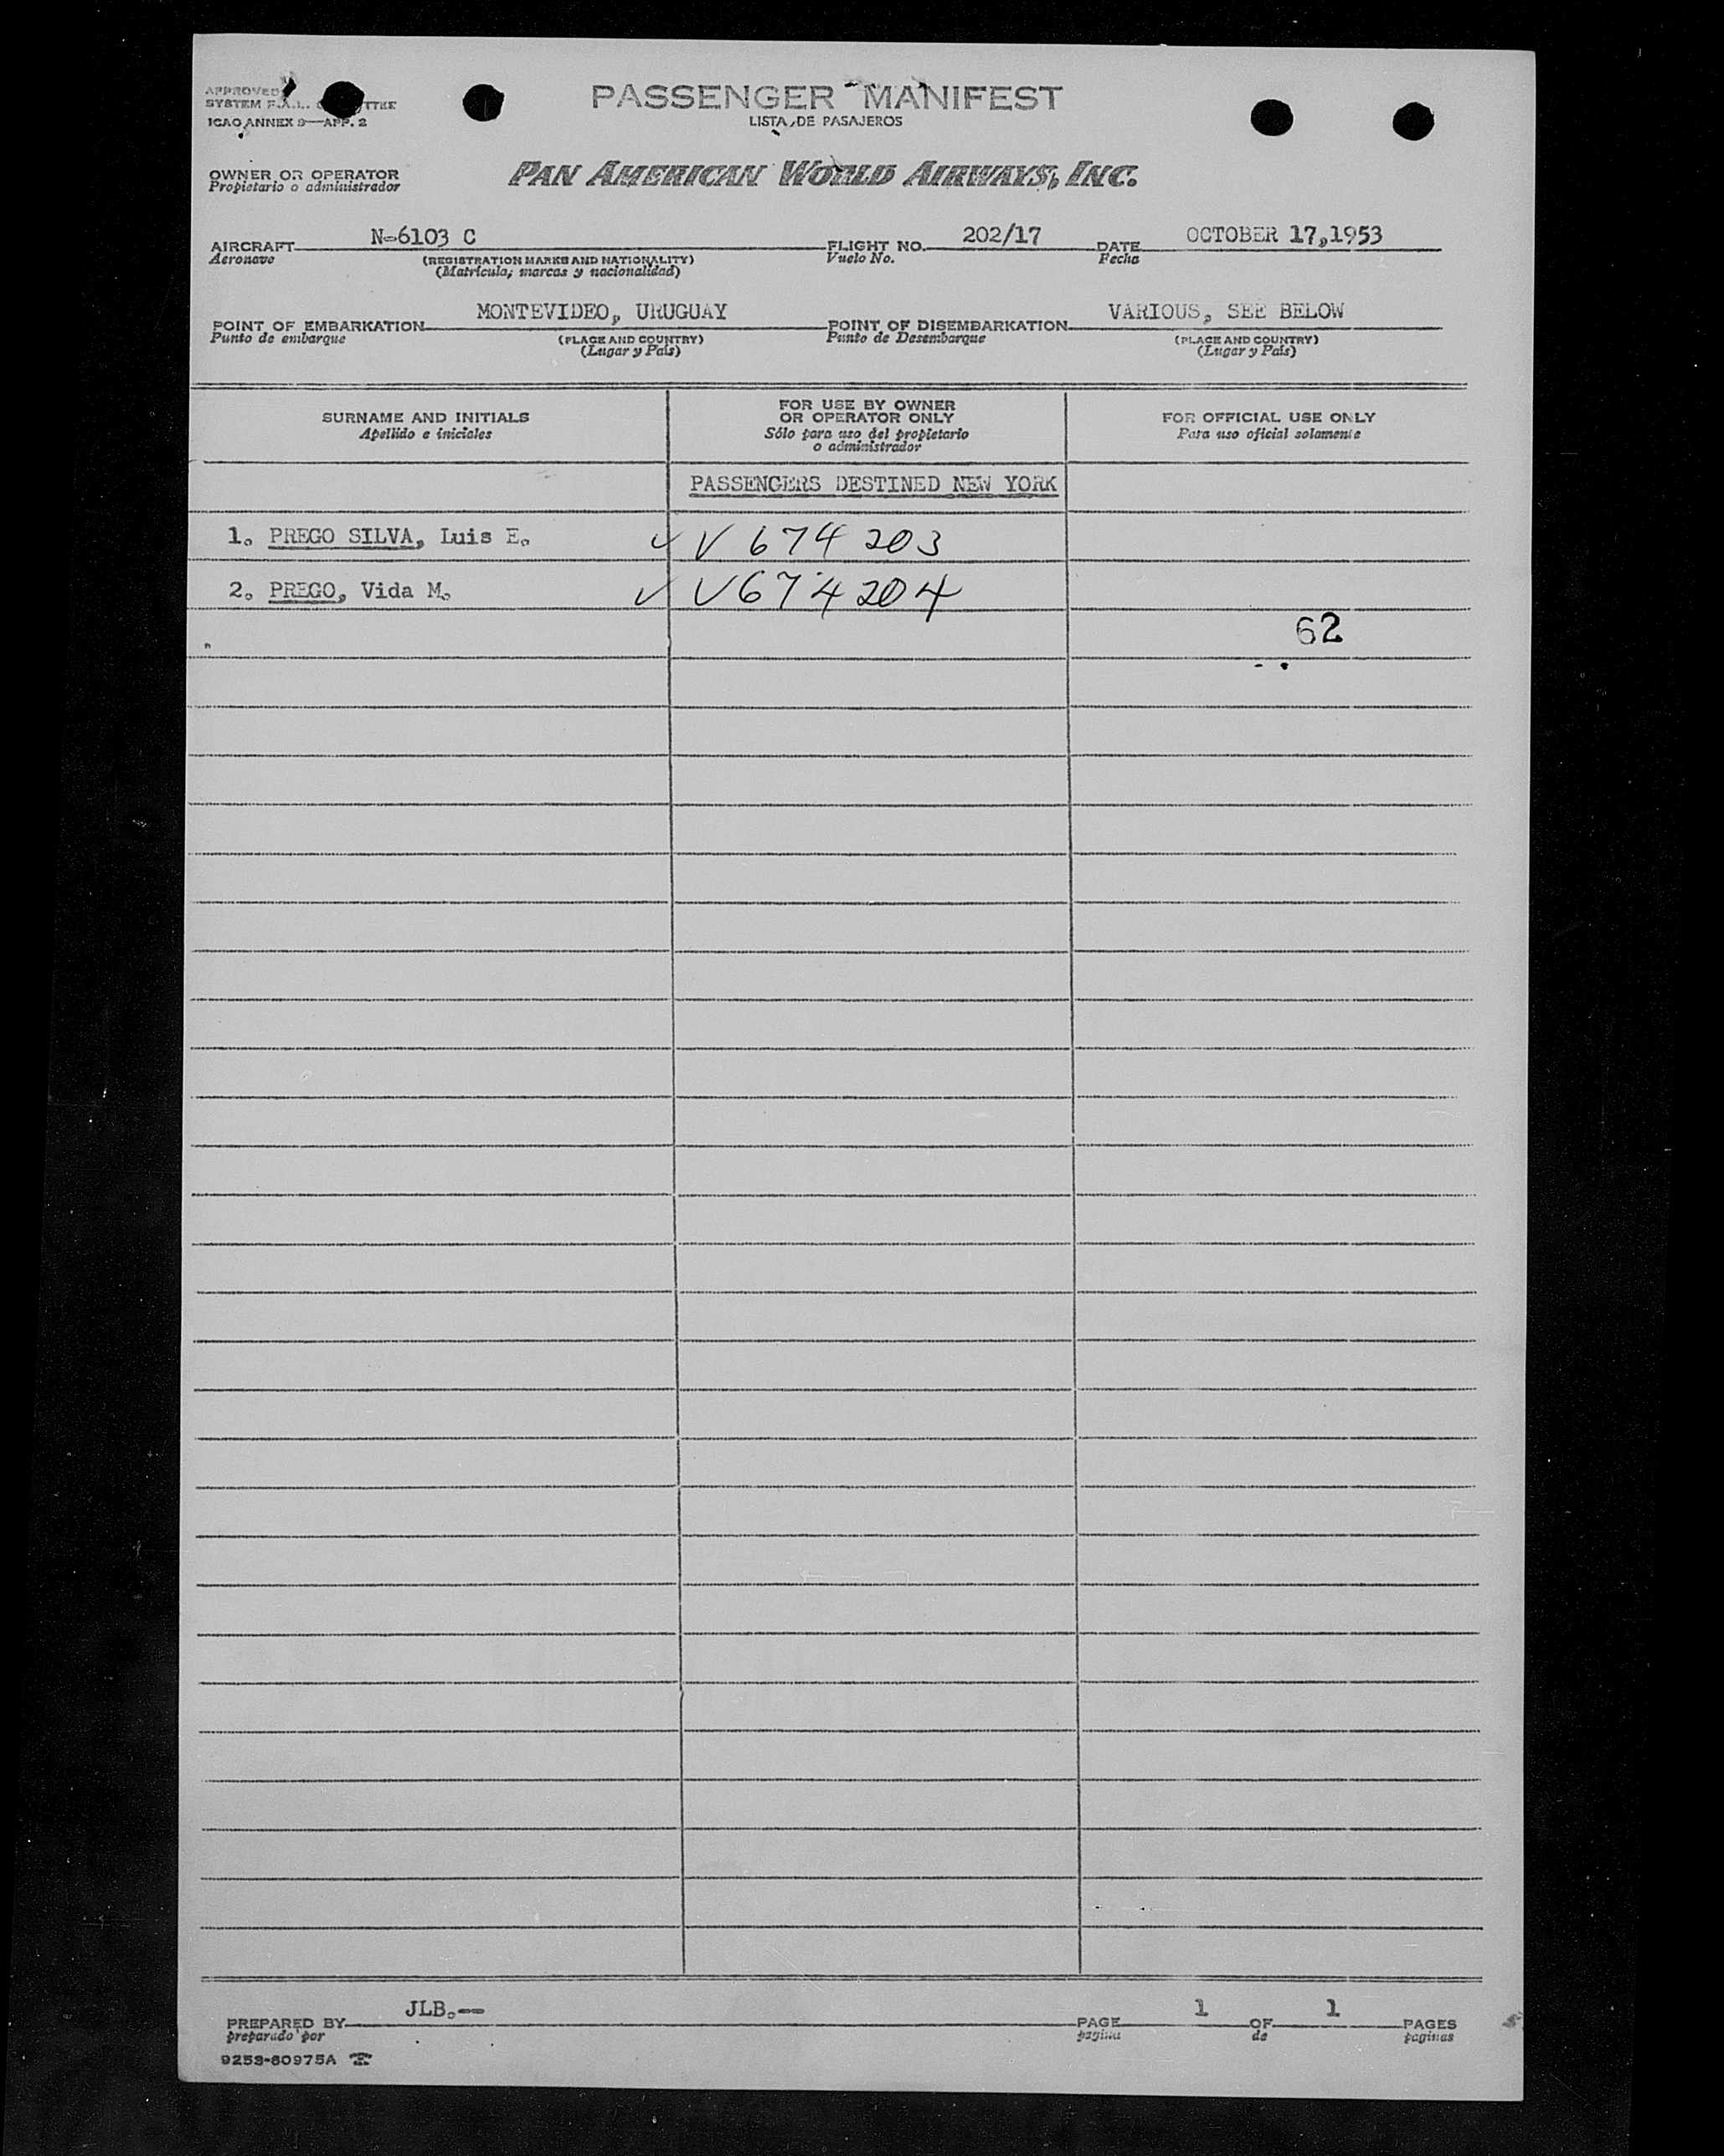 APPROVED
SYSTEM F.A.L. COMMITTEE
ICAO ANNEX 9—APP. 2
PASSENGER MANIFEST
LISTA DE PASAJEROS
OWNER OR OPERATOR
Propietario o administrador
PAN AMERICAN WORLD AIRWAYS, INC.
AIRCRAFT N-6103 C FLIGHT NO. 202/17 DATE OCTOBER 17,1953
Aeronave (REGISTRATION MARKS AND NATIONALITY) Vuelo No. Fecha
(Matrícula; marcas y nacionalidad)
POINT OF EMBARKATION MONTEVIDEO, URUGUAY POINT OF DISEMBARKATION VARIOUS, SEE BELOW
Punto de embarque (PLACE AND COUNTRY) Punto de Desembarque (PLACE AND COUNTRY)
(Lugar y País) (Lugar y País)
SURNAME AND INITIALS
Apellido e iniciales
FOR USE BY OWNER
OR OPERATOR ONLY
Sólo para uso del propietario
o administrador
FOR OFFICIAL USE ONLY
Para uso oficial solamente
PASSENGERS DESTINED NEW YORK
1. PREGO SILVA, Luis E. ✓ V 674 203
2. PREGO, Vida M. ✓ V674204
62
PREPARED BY JLB.-- PAGE 1 OF 1 PAGES
preparado por página de paginas
9253-60975A